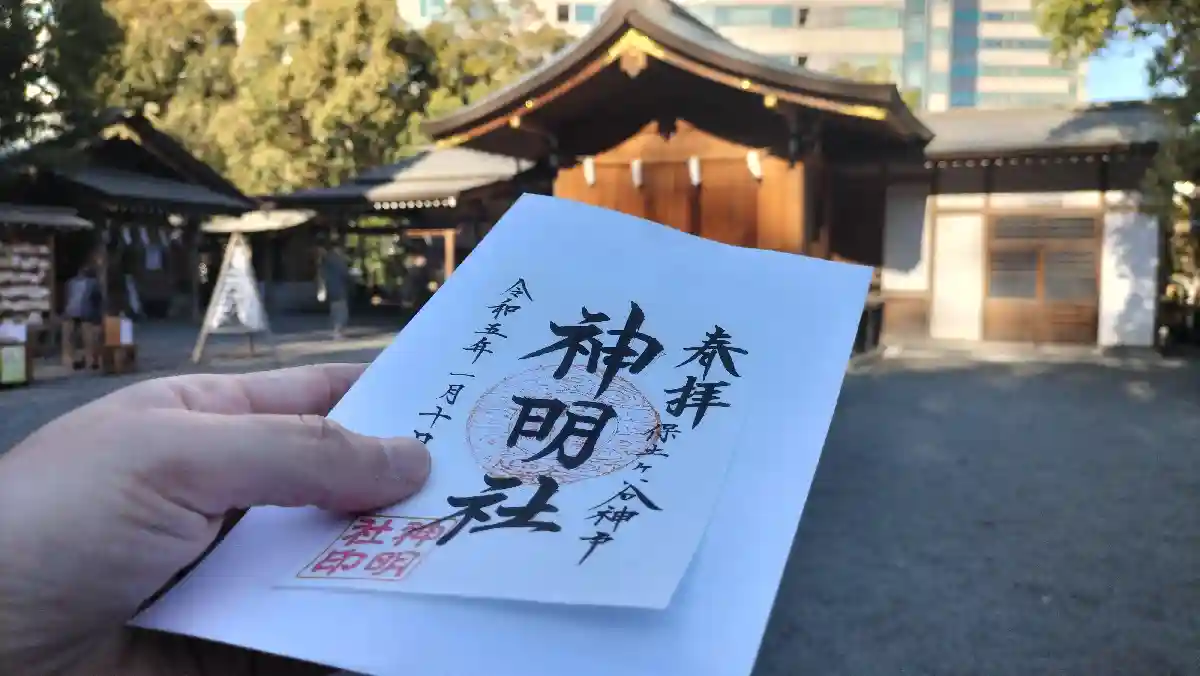 奉拝
保土ヶ谷神戸
神明社
令和五年一月十日
神明
社印